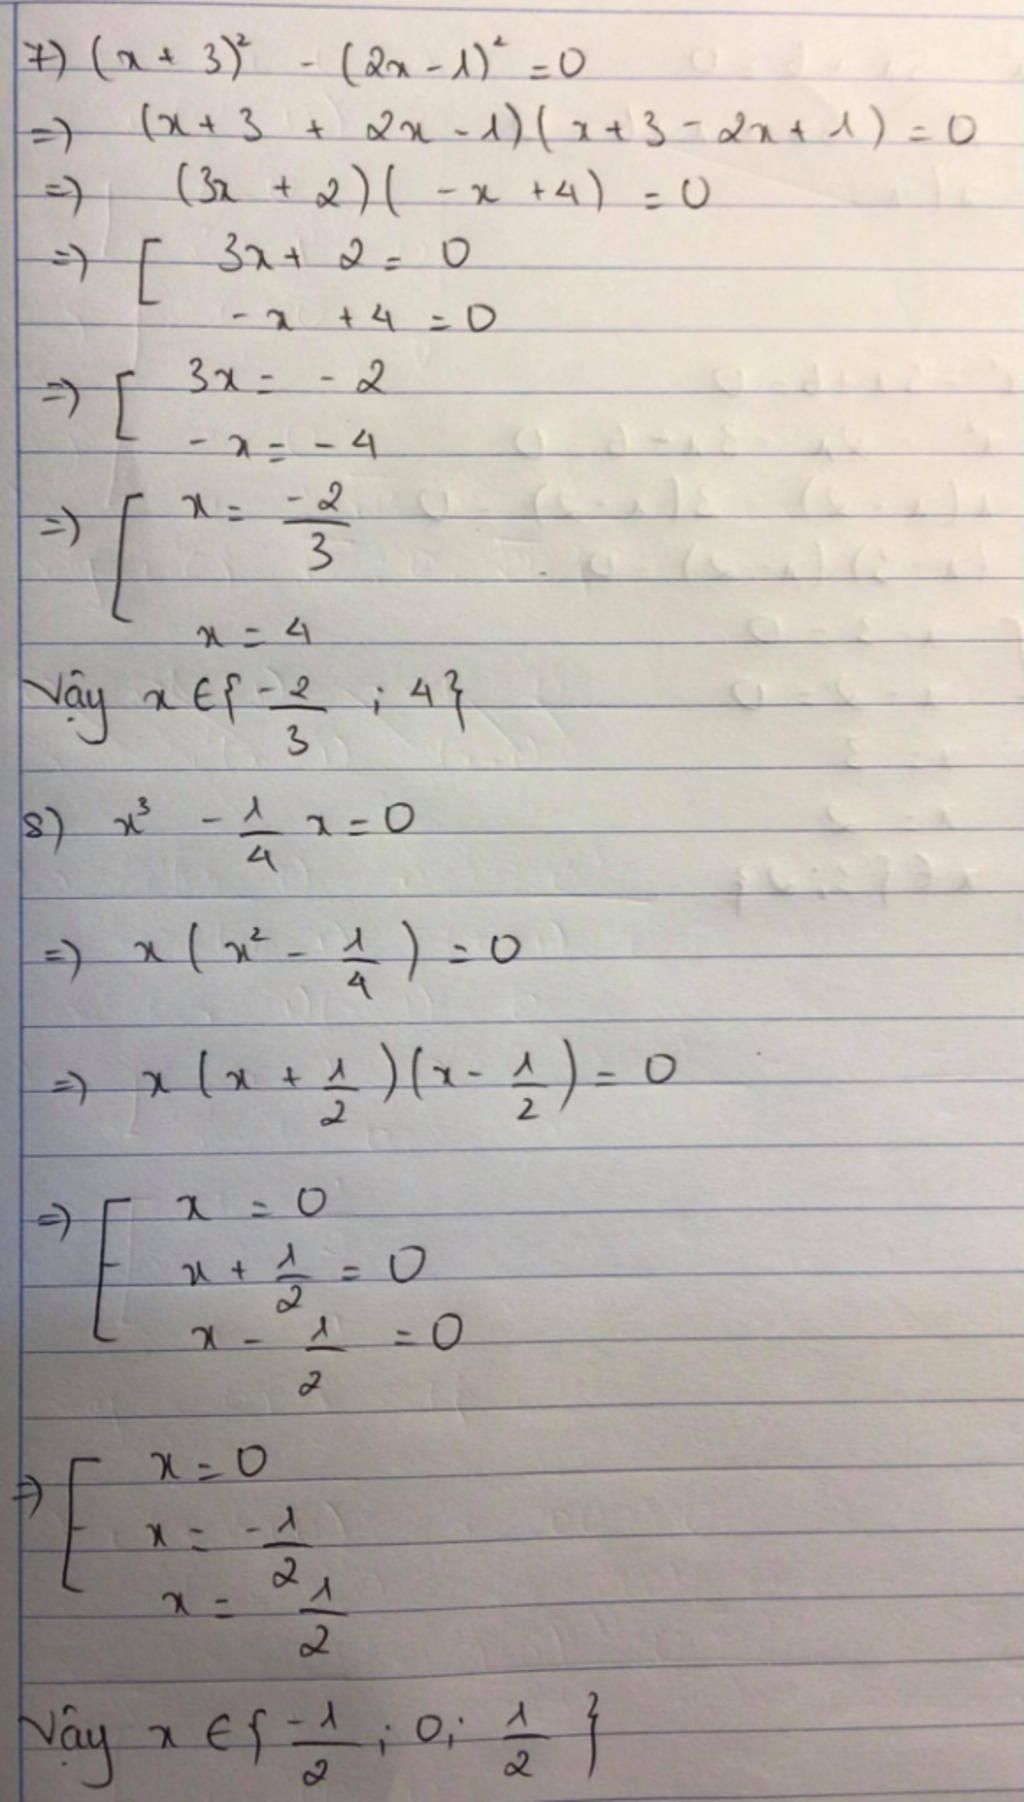 7) (x + 3)² - (2x - 1)² = 0
=) (x + 3 + 2x - 1)(x + 3 - 2x + 1) = 0
=) (3x + 2)(-x + 4) = 0
=) [ 3x + 2 = 0
-x + 4 = 0
=) [ 3x = -2
-x = -4
=) [ x = -2/3
x = 4
Vậy x ∈ { -2/3 ; 4 }
8) x³ - 1/4 x = 0
=) x ( x² - 1/4 ) = 0
=) x ( x + 1/2 )( x - 1/2 ) = 0
=) [ x = 0
x + 1/2 = 0
x - 1/2 = 0
=) [ x = 0
x = -1/2
x = 1/2
Vậy x ∈ { -1/2 ; 0 ; 1/2 }